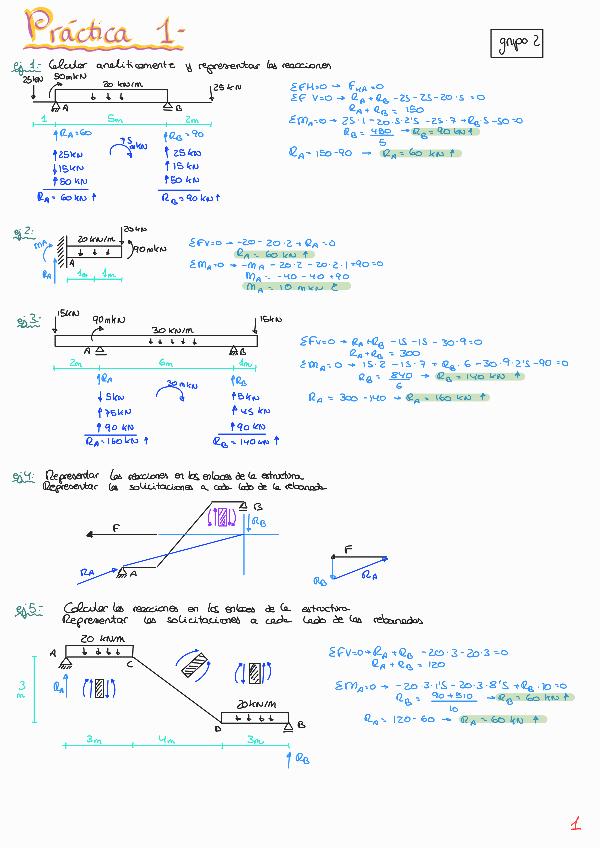 Práctica 1-
grupo 2
ej 1- Calcular analíticamente y representar las reacciones
25kN 50mkN 20 kN/m 25kN
A B
1 5m 2m
RA=60 5mkN RB=90
↑25kN ↑25kN
↓15kN ↑15kN
↑50kN ↑50kN
RA=60kN↑ RB=90kN↑
ΣFH=0 → FHA=0
ΣFV=0 → RA+RB-25-25-20·5=0
RA+RB=150
ΣMA=0 → 25·1-20·5·2'5-25·7+RB·5-50=0
RB=450/5 → RB=90kN↑
RA=150-90 → RA=60kN↑
ej 2:
20kN
20kN/m
MA 90mkN
RA A
1m 1m
ΣFV=0 → -20-20·2+RA=0
RA=60kN↑
ΣMA=0 → -MA-20·2-20·2·1+90=0
MA=-40-40+90
MA=10mkN
ej 3-
15kN 90mkN 15kN
30kN/m
A B
2m 6m 1m
RA 30mkN RB
↓5kN ↑5kN
↑75kN ↑45kN
↑90kN ↑90kN
RA=160kN↑ RB=140kN↑
ΣFV=0 → RA+RB-15-15-30·9=0
RA+RB=300
ΣMA=0 → 15·2-15·7+RB·6-30·9·2'5-90=0
RB=840/6 → RB=140kN↑
RA=300-140 → RA=160kN↑
ej 4: Representar las reacciones en los enlaces de la estructura
Representar las solicitaciones a cada lado de la rebanada
B
RB
F
RA A
F
RB RA
ej 5- Calcular las reacciones en los enlaces de la estructura
Representar las solicitaciones a cada lado de las rebanadas
20kN/m
A C
RA
3m
20kN/m
D B
3m 4m 3m
RB
ΣFV=0 → RA+RB-20·3-20·3=0
RA+RB=120
ΣMA=0 → -20·3·1'5-20·3·8'5+RB·10=0
RB=90+510/10 → RB=60kN↑
RA=120-60 → RA=60kN↑
1